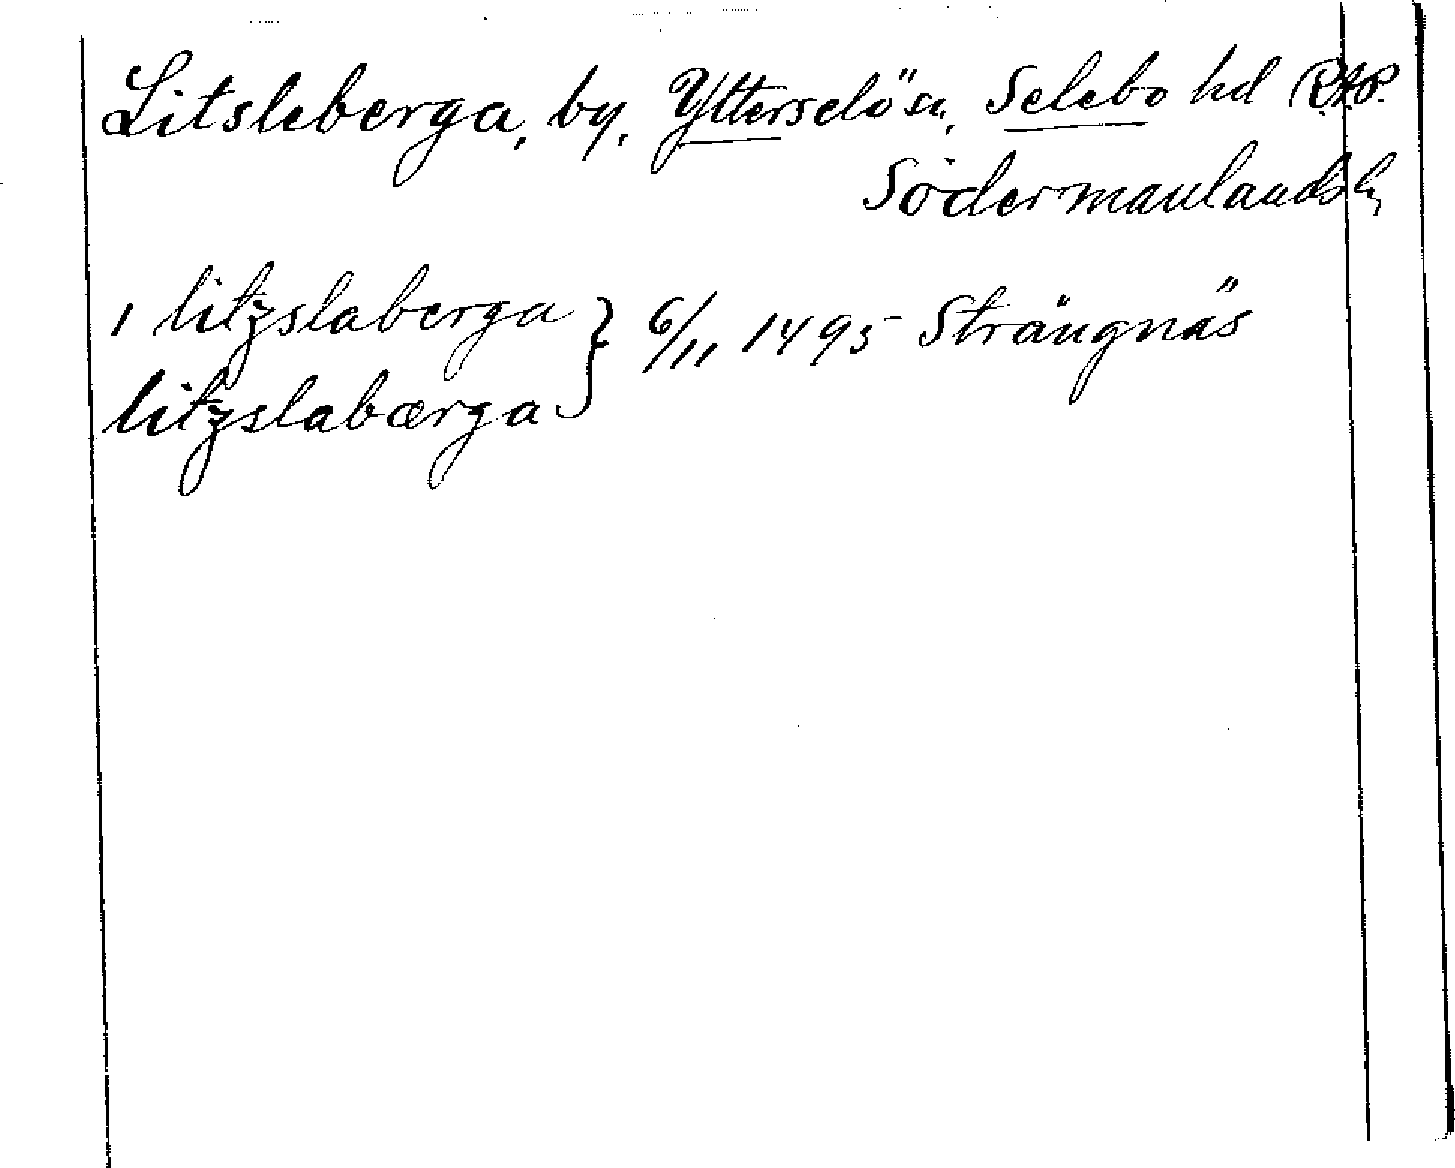 Litsleberga, by, Ytterselö sn, Selebo hd RAP.
Södermanlands l.
ı litzslaberga } 6/11 1495 Strängnäs
litzslabærga